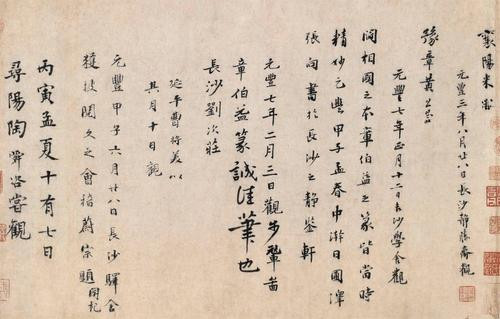 襄陽米黻
元豐三年八月廿八日長沙靜勝齋觀
豫章黃公器
元豐七年正月十二日長沙學舍觀
閻相國之本章伯益之篆皆當時
精妙元豐甲子孟春中澣日圃渾
張向書於長沙之靜鑒軒
元豐七年二月三日觀步輦圖
章伯益篆誠佳筆也
長沙劉次莊
延平曹將美以
其月十日觀
元豐甲子六月廿八日長沙驛舍
獲披閱久之會稽蔚宗題開記
丙寅孟夏十有七日
尋陽陶舜咨嘗觀